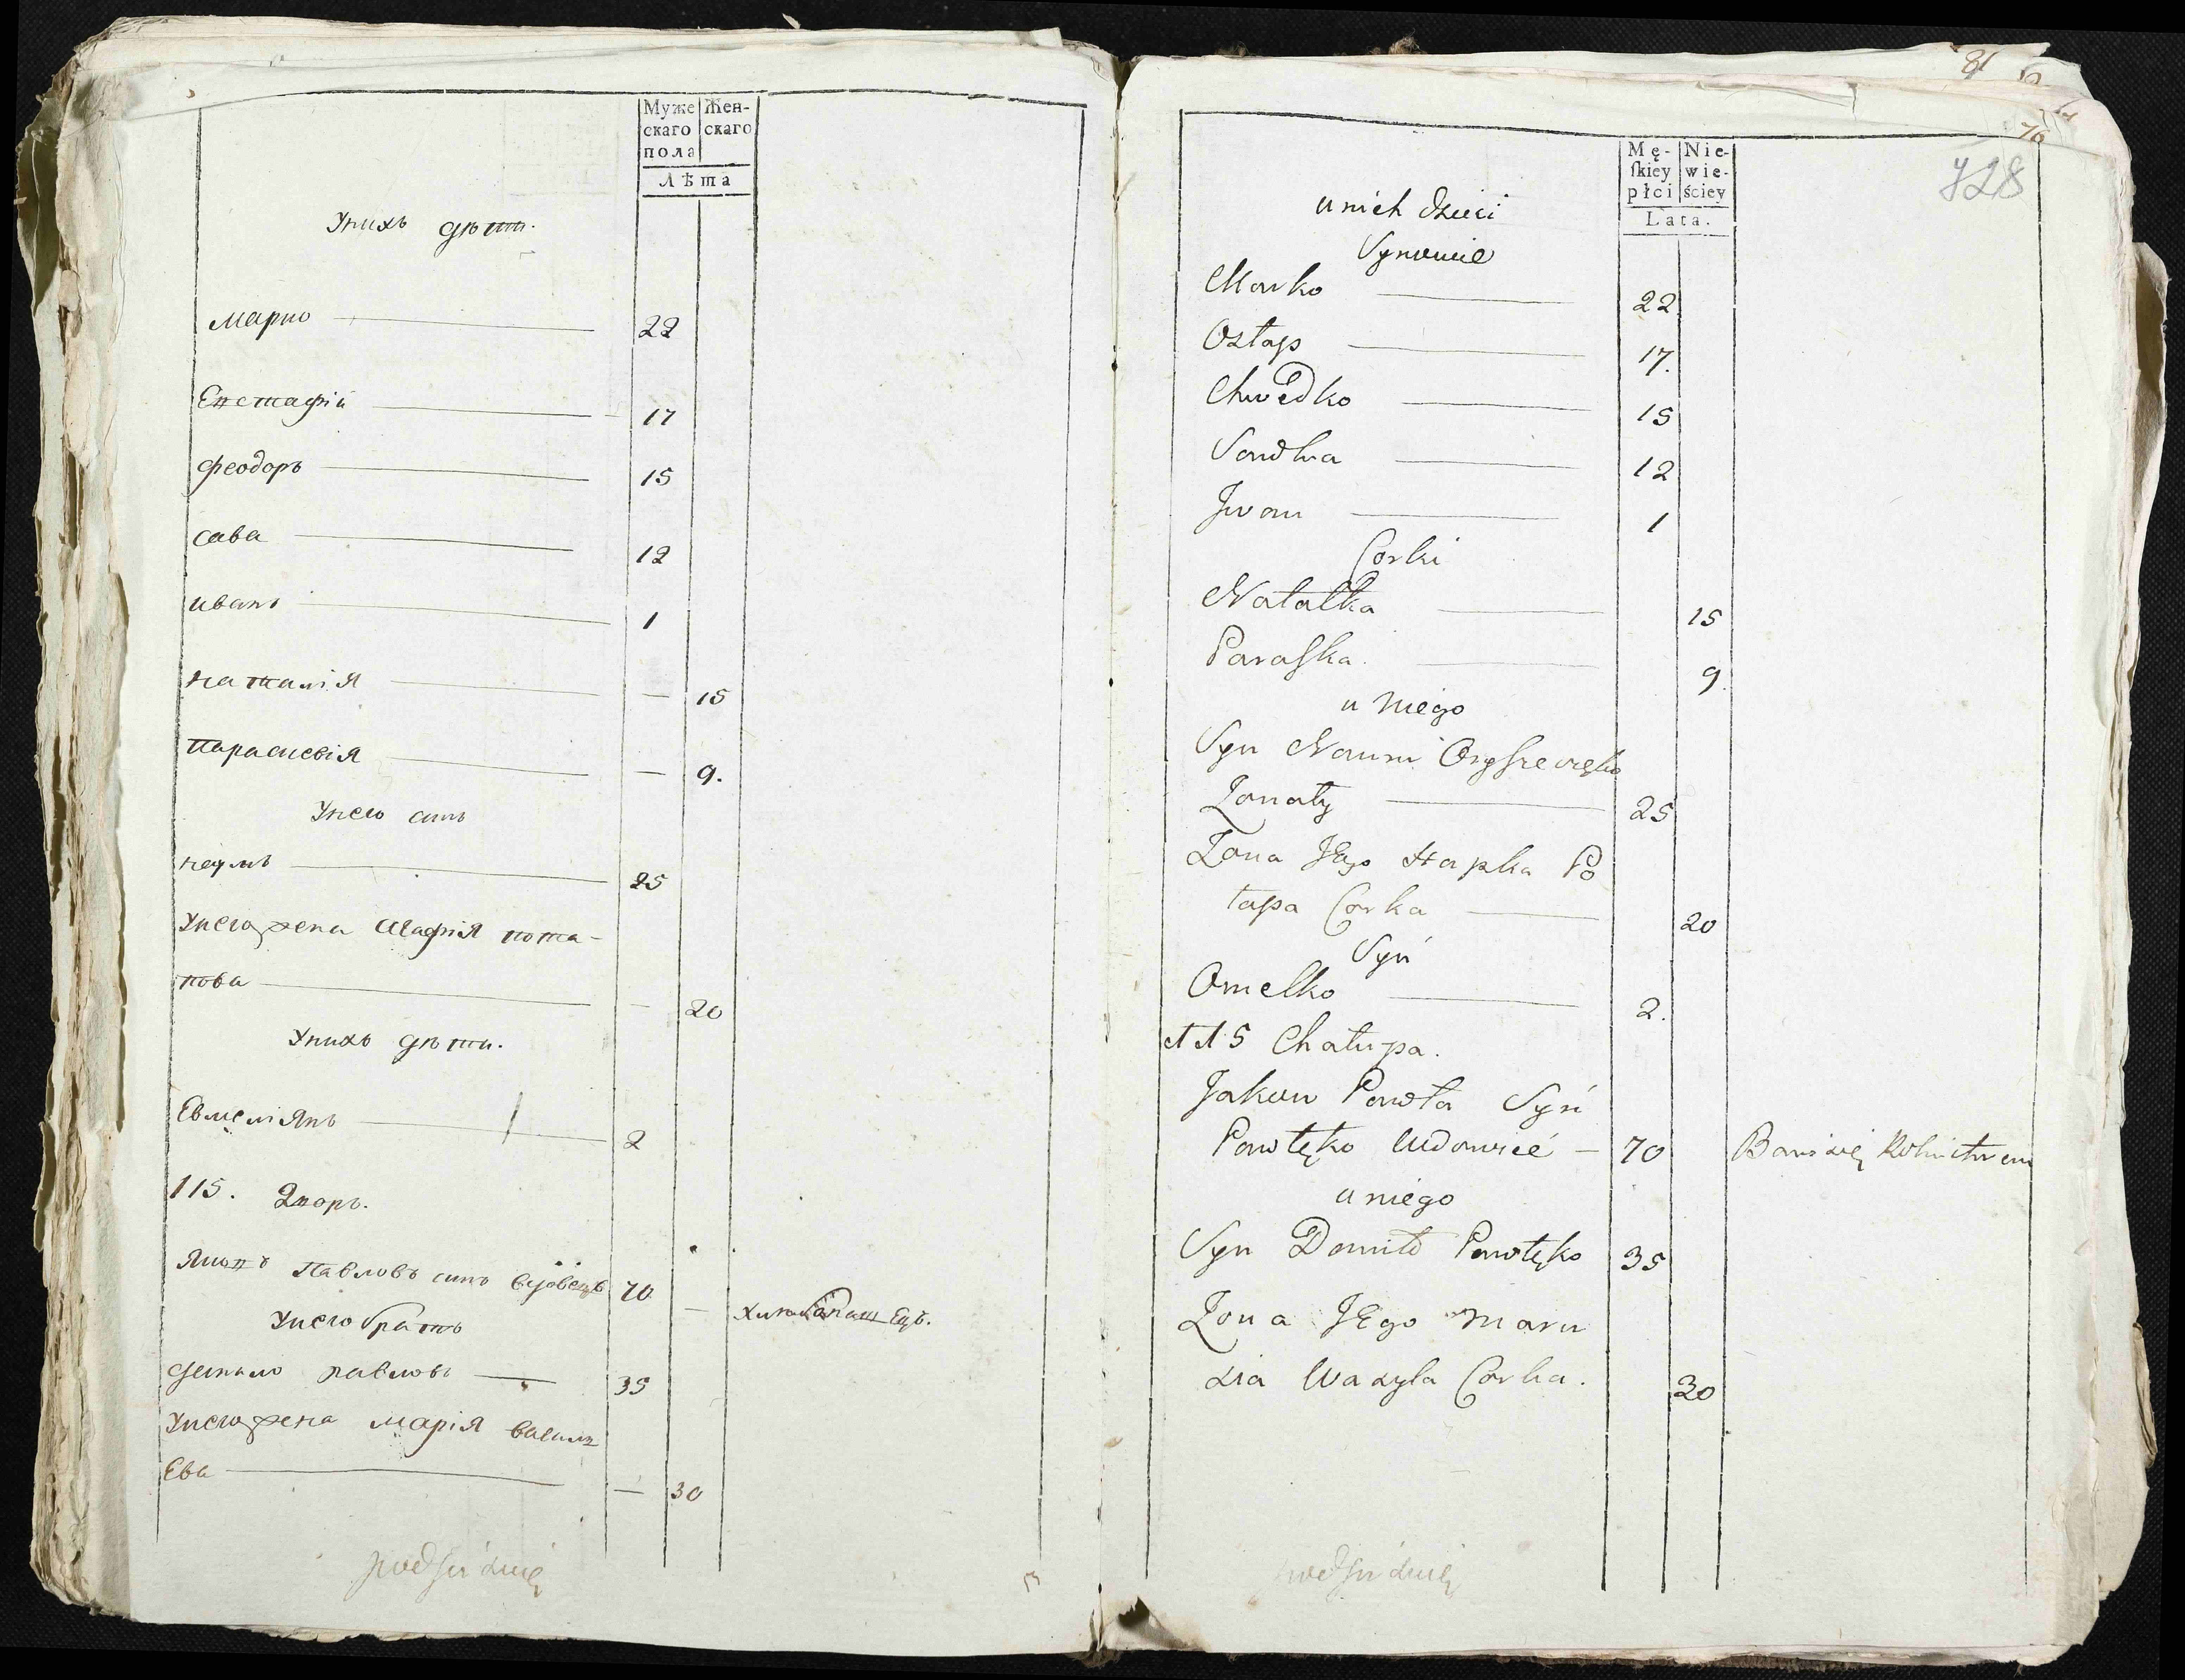 Муже
скаго
пола
Жен-
скаго
Лѣта
Унихъ дѣти.
марко 22
Евстафій 17
феодоръ 15
сава 12
иванъ 1
наталія — 15
параскевія — 9.
Унего синъ
наумъ 25
Унего жена Агафія пота-
пова — 20
Унихъ дѣти.
Евмеліянъ 2
115. Дворъ.
Яковъ Павловъ синъ вдовецъ 70 —
Унего братъ
данило павловъ 35
Унего жена марія васил
Ева — 30
81
76
728
Mę-
skiey
płci
Nie-
wie-
ściey
Lata.
u nich dzieci
Synowie
Marko 22
Ostap 17.
Chwedko 15
Sawka 12
Jwan 1
Corki
Natałka 15
Paraska. 9.
u niego
Syn Naum
Zonaty 25
Zona JEgo Hapka Po
tapa Corka 20
Syn
Omelko 2.
115 Chałupa.
Jakow Pawła Syn
Pawłęko Udowiec — 70 Bawi się Rolnictwem
u niego
Syn Daniło Pawłęko 35
Zona JEgo Maru
sia Wasyla Corka. 30